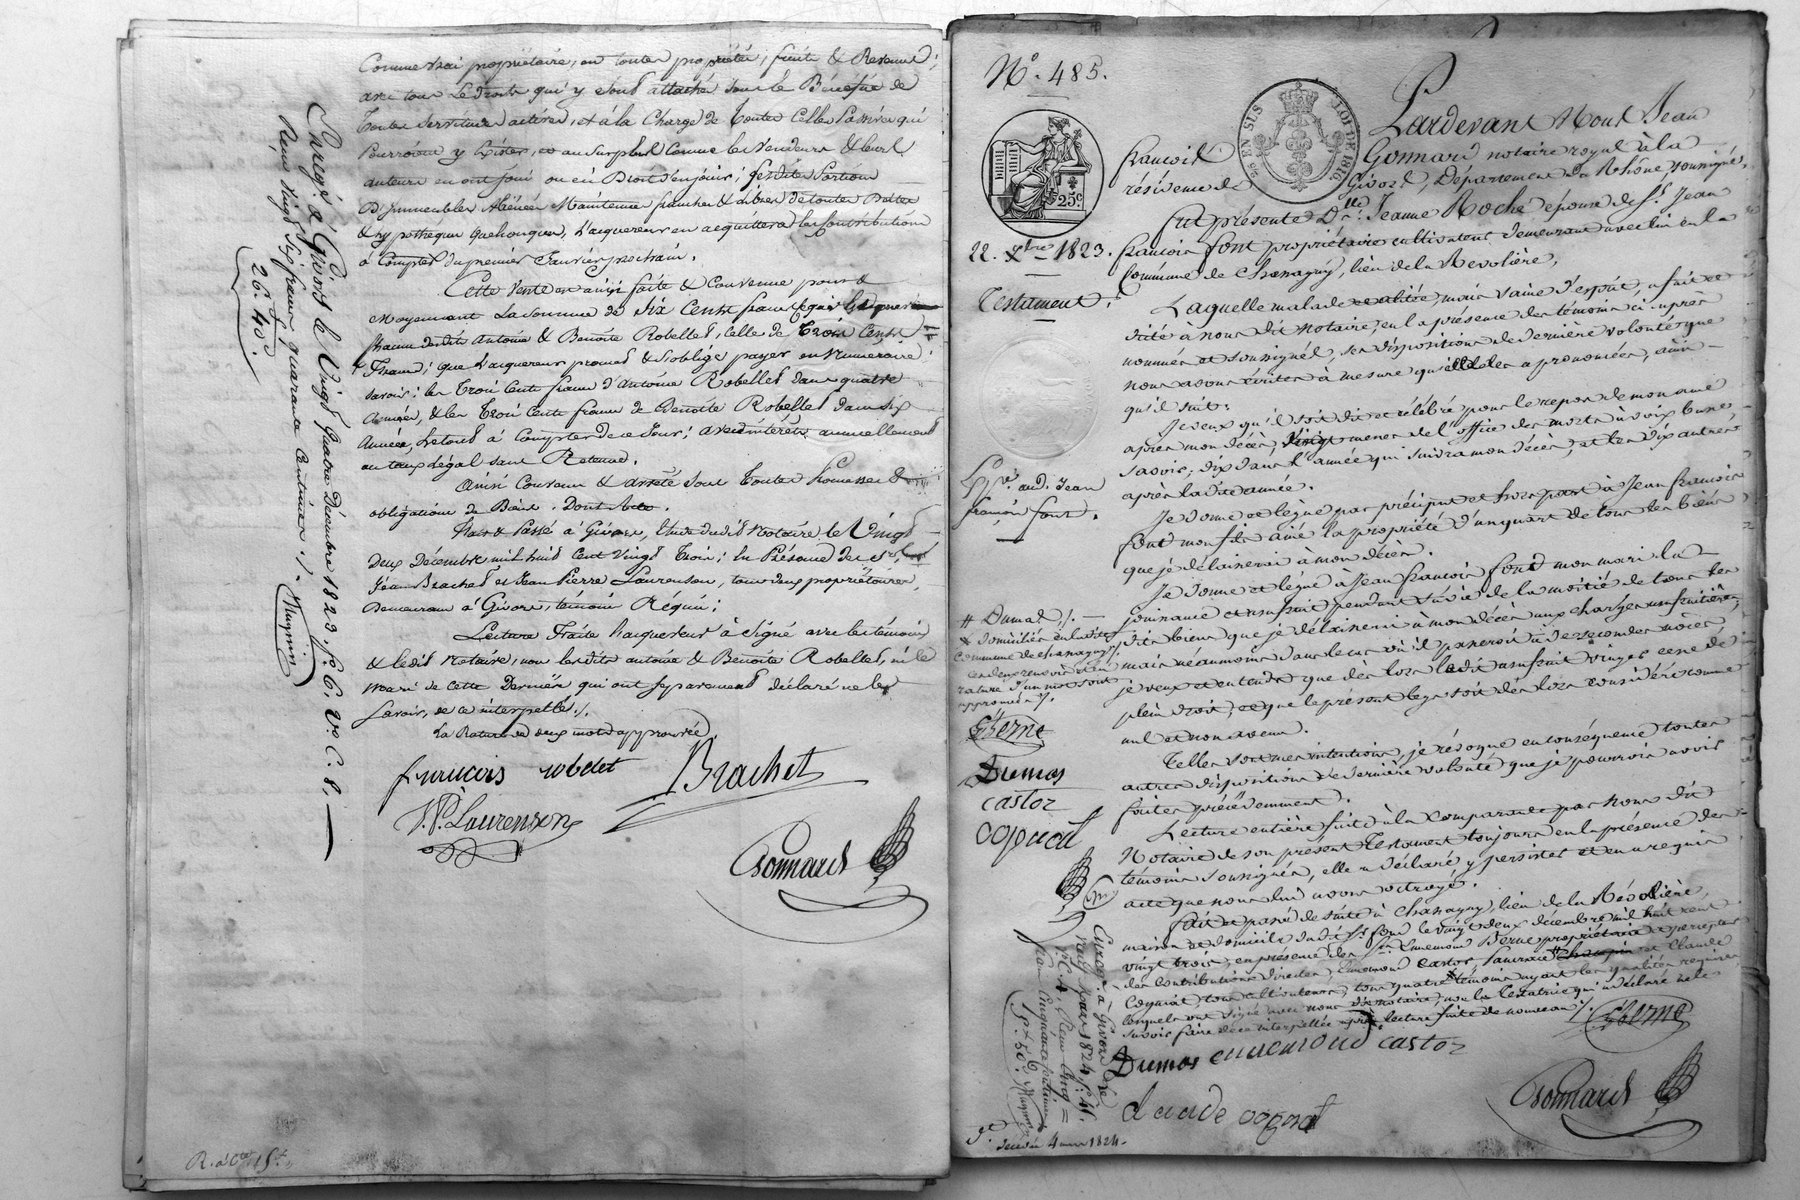 Comme vrai propriétaire, en toutes propriétés, fruits & Revenus;
avec tous les droits qui y sont attachés sous le Bénéfice de
toutes servitudes actives, et à la Charge de toutes Celles passives qui
pourroient y Exister, au surplus Comme les vendeurs & leurs
auteurs en ont joui ou eu Droit d'en jouir; lesdites Portions
D'Immeubles aliénées Maintenues franches & libres de toutes Dettes
& hypothèques quelconques, L'acquereur en acquittera les Contributions
à Compter du premier Janvier prochain.
Cette vente est ainsi faite & Convenue pour &
Moyennant La somme de Six Cents francs
francs desdits Antoine & Benoîte Robellet, Celle de Trois Cents
Francs; que L'acquereur promet & s'oblige payer en Numeraire;
savoir: les Trois Cents francs d'Antoine Robellet dans quatre
Années, & les Trois Cents francs de Benoîte Robellet dans six
Années, le tout à Compter de ce Jour; avec intérêts annuellement
au taux légal sans Retenue.
Ainsi Convenu & arrêté sous Toutes Promesses &
obligations de Biens. Dont Acte.
Fait & Passé à Givors, Etude dudit Notaire le Vingt
Deux Décembre mil huit Cent Vingt Trois; En Présence des Srs
Jean Brachet et Jean Pierre Laurenson, tous deux propriétaires,
Demeurans à Givors, témoins Réquis;
Lecture Faite L'acquereur à Signé avec les témoins
& ledit Notaire, non lesdits antoine & Benoîte Robellet, ni le
Mari de cette Dernière qui ont séparement déclaré ne le
Savoir, de ce interpellés./.
La Rature de deux mots approuvée.
françois robelet
Brachet
J.P. Laurenson
Gonnard
Enregé. à Givors le Vingt quatre Décembre 1823. fo. 6. Vo. C. 8.
Reçu Vingt Six francs quarante Centimes./.
26.f 40.c
R. à 15.f
No. 485.
25c
EN SUS
LOI DE 1816
Pardevant Nous Jean
François Gonnard notaire royal à la
résidence de Givors, Département du Rhône, soussigné,
22. Xbre 1823.
Testament.
Fut présente Dlle. Jeanne Roche épouse de Sr. Jean
François Font propriétaire cultivateur demeurant avec lui en la
Commune de Chassagny, lieu de la Révolière,
Laquelle malade et alitée, mais saine d'esprit, a fait et
dicté à nous dit Notaire, en la présence des témoins ci-après
nommés et soussignés, ses dispositions de dernière volonté que
nous avons écrites à mesure qu'elle les a prononcées, ainsi
qu'il suit:
Je veux qu'il soit dit et célébré pour le repos de mon ame
après mon décès, vingt messes de l'office des morts à voix basse,
savoir; dix dans l'année qui suivra mon décès, et les dix autres
après ladite année.
Jean
François Font.
Je donne et lègue par préciput et hors part à Jean François
Font mon fils ainé la propriété d'un quart de tous les biens
que je délaisserai à mon décès.
Je donne et lègue à Jean François Font mon mari la
jouissance et usufruit pendant sa vie de la moitié de tous les
dits biens que je délaisserai à mon décès aux charges usufruitières,
mais néanmoins dans le cas où il passeroit à de secondes noces
je veux et entends que dès lors ledit usufruit vienne cesse de
plein droit, et que le présent legs soit dès lors considéré comme
nul et non avenu.
# Dumas ./.
& domiciliés en ladite
commune de chassagny
ces deux renvois et la
rature d'un mot sont
approuvés./.
E. Berne
Dumas
castor
cognat
Telles sont mes intentions, je révoque en conséquence toutes
autres dispositions de dernière volonté que je pourrois avoir
faites précédemment.
Lecture entière faite à la comparante par nous dit
Notaire de son présent Testament toujours en la présence des
témoins soussignés, elle a déclaré y persister et en a requis
acte que nous lui avons octroyé.
Fait et passé de suite à Chassagny, lieu de la Révolière,
maison et domicile dudit Sr. Font le vingt deux décembre mil huit cent
vingt trois, en présence des Srs Ennemond Berne propriétaire et percepteur
des contributions directes, Ennemond Castor, Laurent et Claude
Cognat, tous cultivateurs, tous quatre témoins ayant les qualités requises,
lesquels ont signé avec nous dit notaire, non la testatrice qui a déclaré ne le
savoir faire de ce interpellée après lecture faite de nouveau ./.
E. Berne
Dumas ennemond castor
claude cognat
Gonnard
Enreg. à Givors le
neuf mars 1824 f. 45.
Vo. C. 4. Reçu Cinq
francs Cinquante Centimes
5.f 50.c
décédée 4 mars 1824.